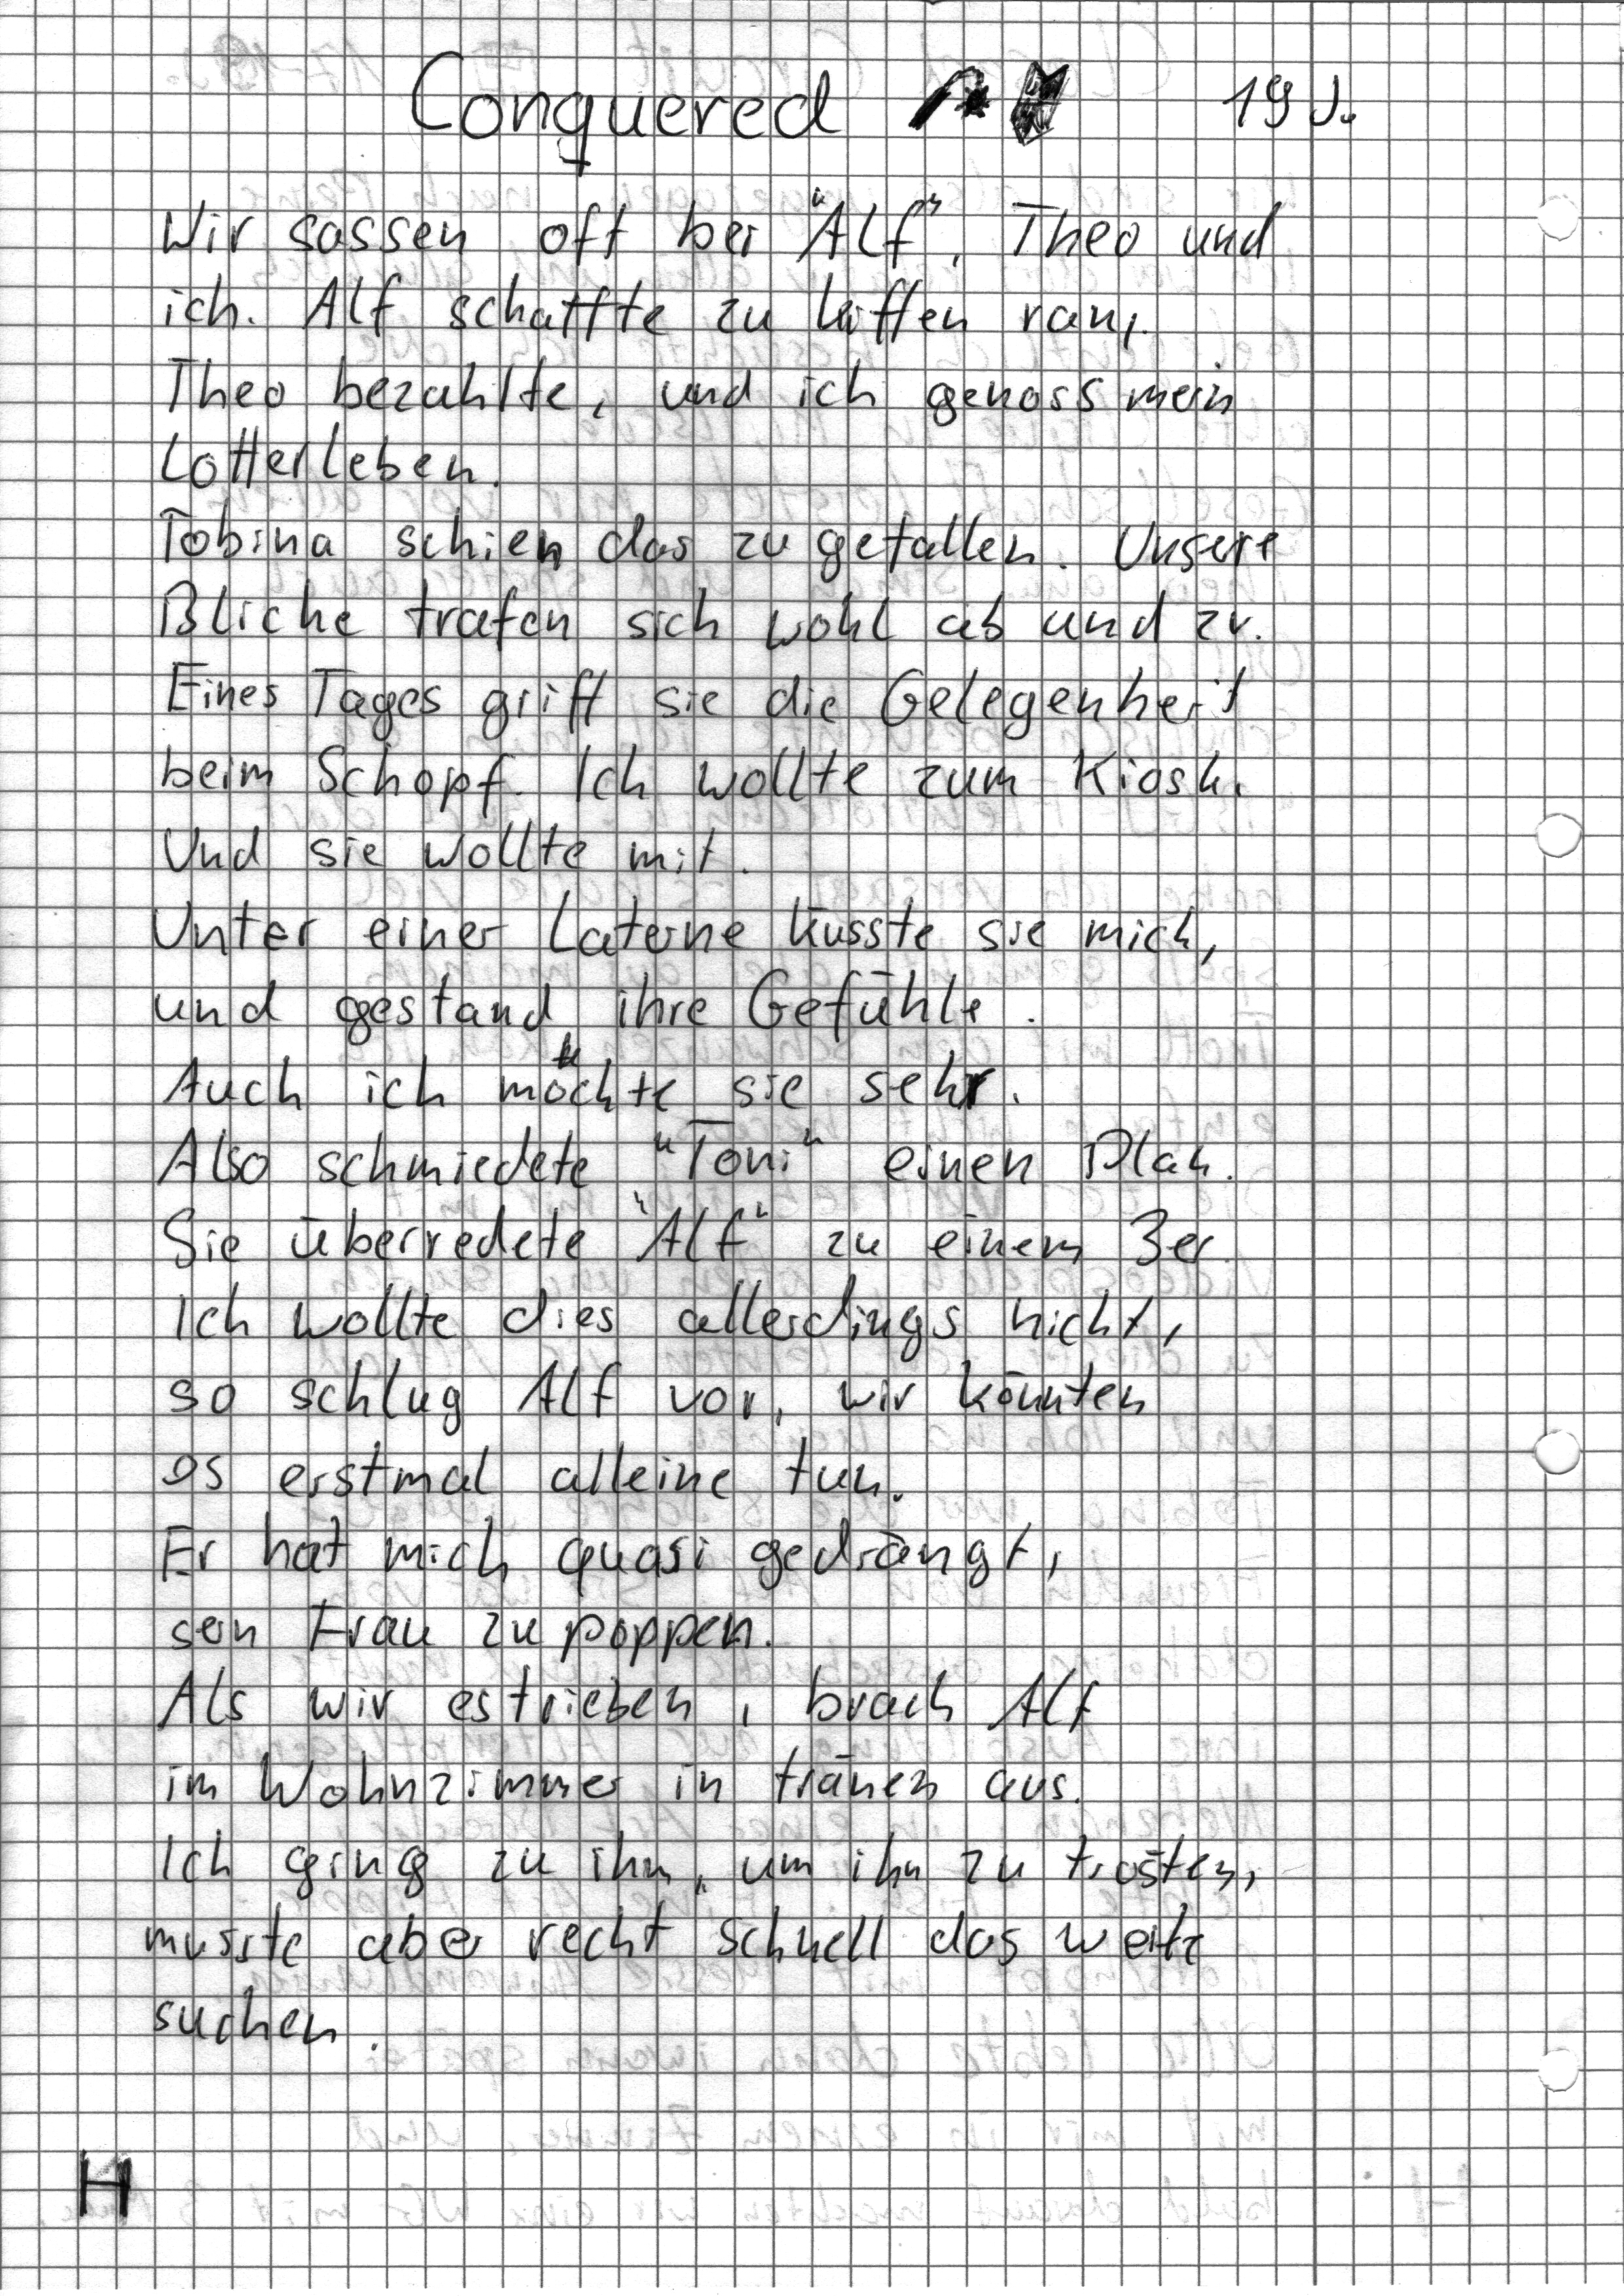 Conquered 19 J.
Wir sassen oft bei "Alf", Theo und
ich. Alf schaffte zu kiffen ran,
Theo bezahlte, und ich genoss mein
Lotterleben.
Tobina schien das zu gefallen. Unsere
Blicke trafen sich wohl ab und zu.
Eines Tages griff sie die Gelegenheit
beim Schopf. Ich wollte zum Kiosk.
Und sie wollte mit.
Unter einer Laterne küsste sie mich,
und gestand ihre Gefühle.
Auch ich mochte sie sehr.
Also schmiedete "Toni" einen Plan.
Sie überredete "Alf" zu einem 3er
Ich wollte dies allerdings nicht,
so schlug Alf vor, wir könnten
es erstmal alleine tun.
Er hat mich quasi gedrängt,
sein Frau zu poppen.
Als wir es trieben, brach Alf
im Wohnzimmer in tränen aus.
Ich ging zu ihm, um ihn zu trösten,
musste aber recht schnell das weite
suchen.
H